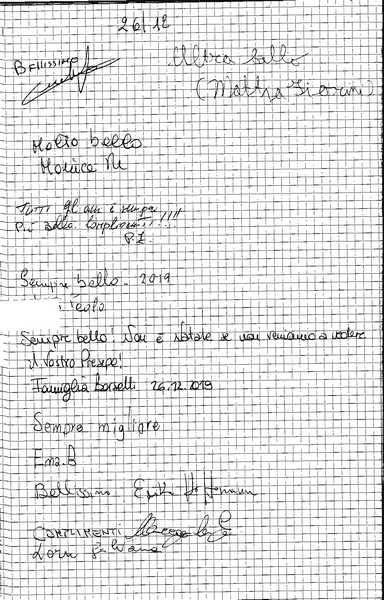 26/12
BELLISSIMO
Ultra bello
(Mattia Fiorini)
Molto bello
Monica M
TUTTI gli anni è sempre
più bello. Complimenti!!!!
P.Z.
Sempre bello - 2019
Sempre bello! Non è Natale se non veniamo a vedere
il Vostro Presepe!
Famiglia Borselli 26.12.2019
Sempre migliore
Ema.B
Bellissimo Erika Hoffmann
COMPLIMENTI